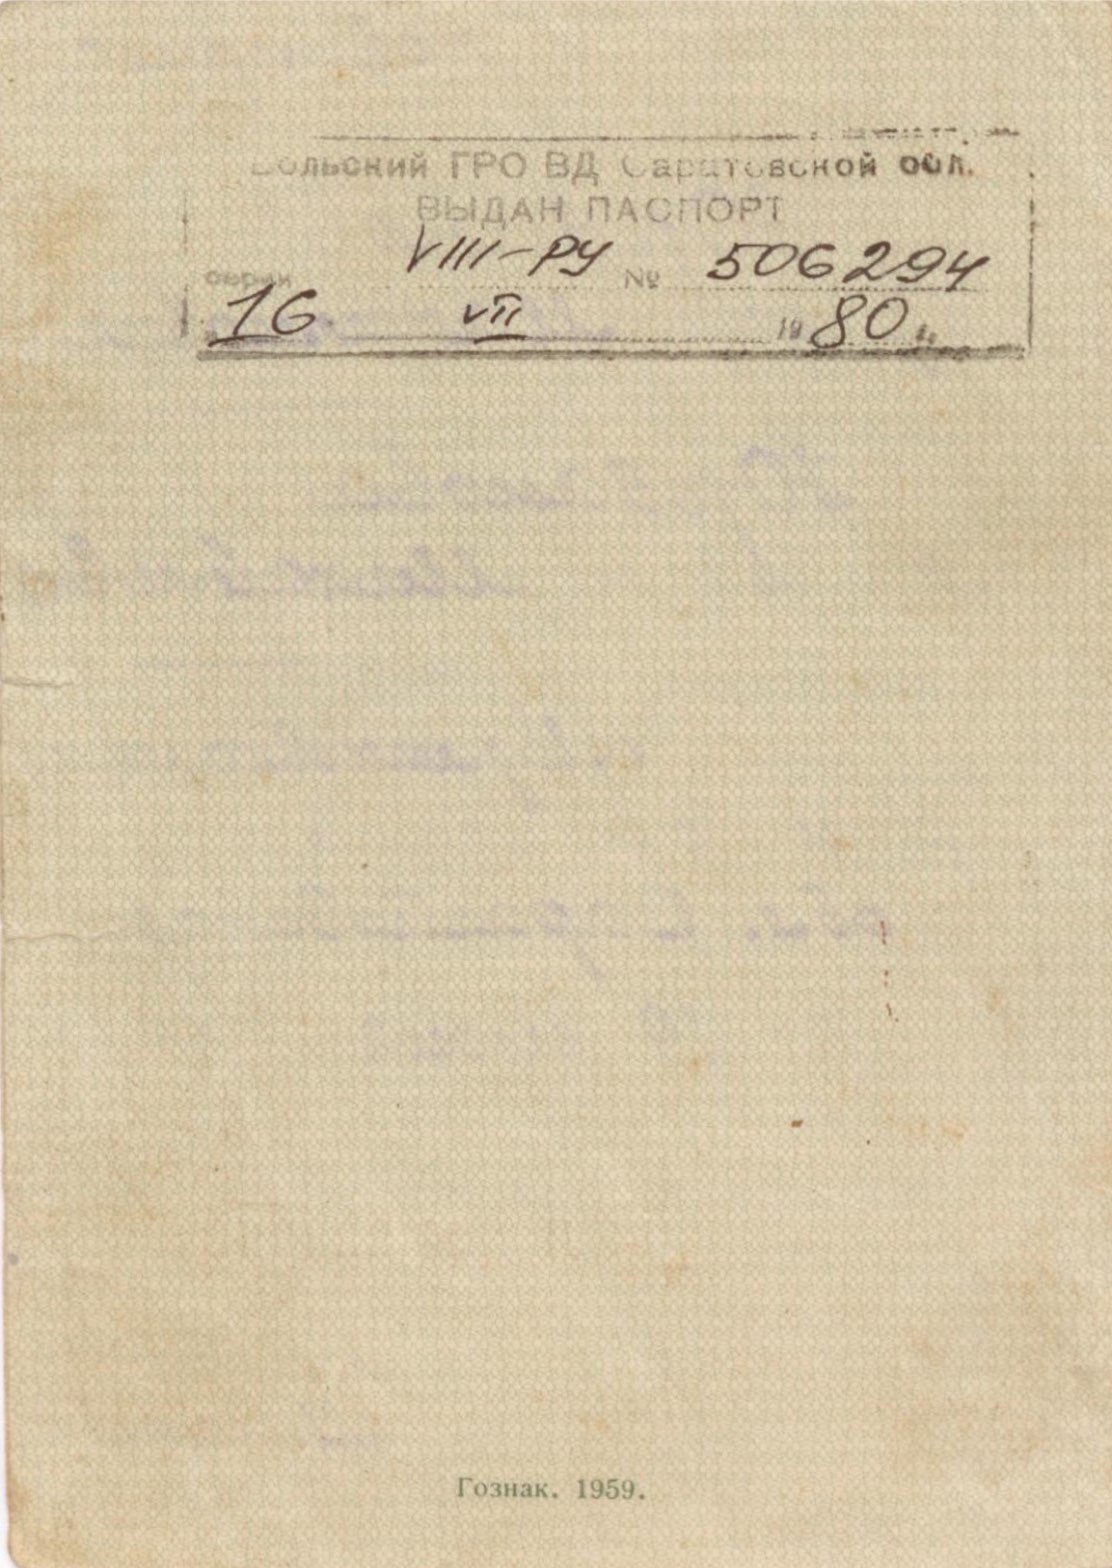 Вольский ГРО ВД Саратовской обл.
ВЫДАН ПАСПОРТ
серии VIII-РУ № 506294
16 VII 1980 г.
Гознак. 1959.